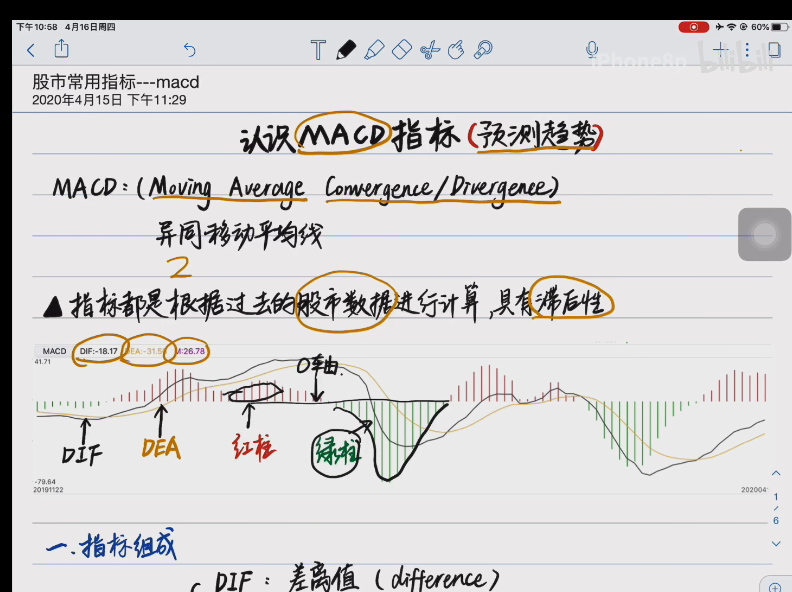 下午10:58 4月16日周四
60%
iPhone8p bilibili
股市常用指标---macd
2020年4月15日 下午11:29
认识MACD指标(预测趋势)
MACD:(Moving Average Convergence/Divergence)
异同移动平均线
2
▲指标都是根据过去的股市数据进行计算,具有滞后性
MACD DIF:-18.17 DEA:-31.56 M:26.78
41.71
0轴
DIF DEA 红柱 绿柱
-79.64
20191122 202004
1
/
6
一.指标组成
DIF:差离值(difference)